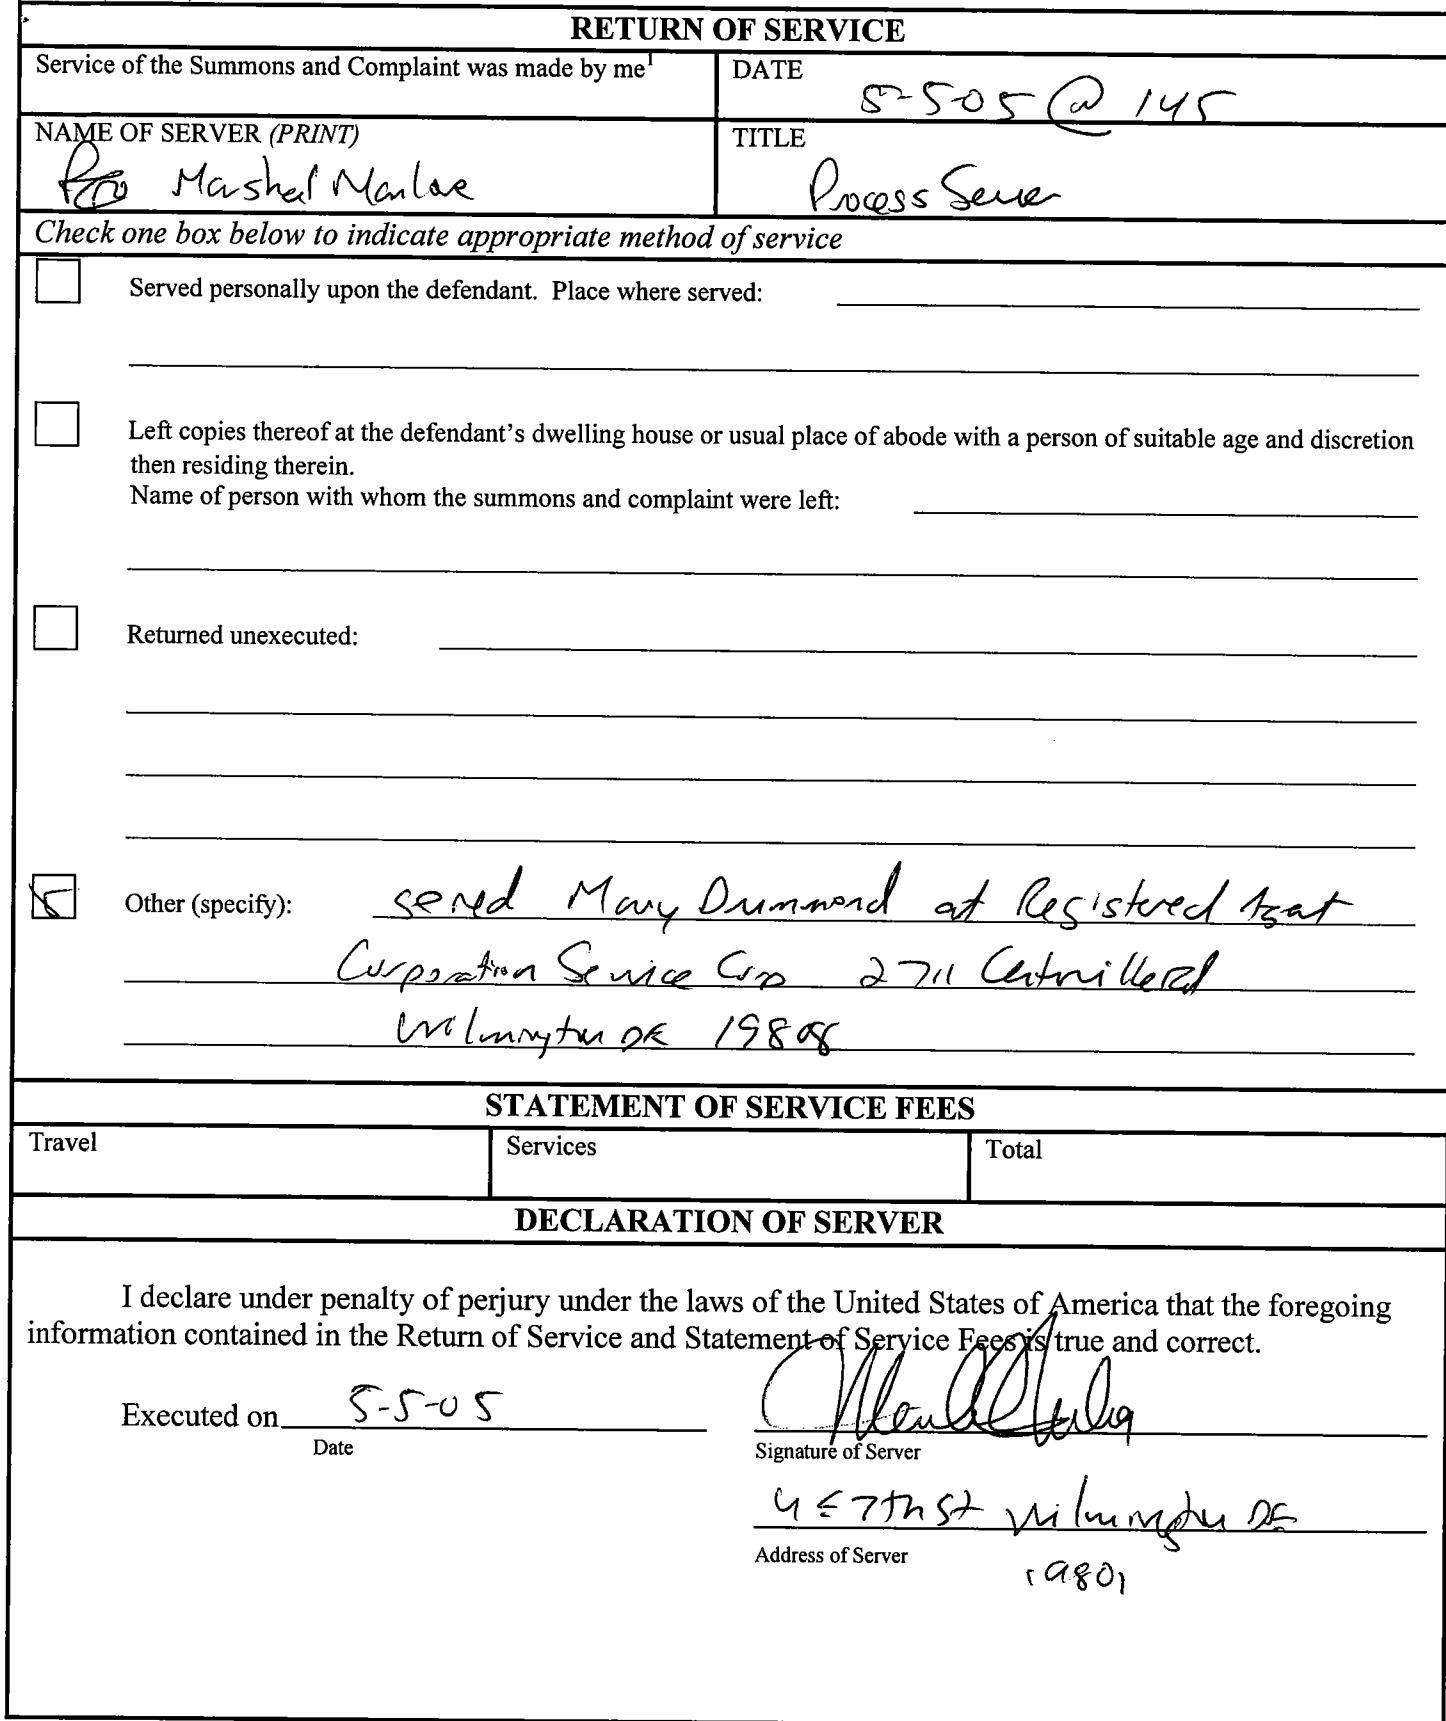 RETURN OF SERVICE
Service of the Summons and Complaint was made by me¹
DATE
5-5-05 @ 145
NAME OF SERVER (PRINT)
Marshal Manlove
TITLE
Process Server
Check one box below to indicate appropriate method of service
Served personally upon the defendant. Place where served:
Left copies thereof at the defendant's dwelling house or usual place of abode with a person of suitable age and discretion
then residing therein.
Name of person with whom the summons and complaint were left:
Returned unexecuted:
Other (specify): served Mary Drummond at Registered Agent
Corporation Service Corp 2711 Centerville Rd
Wilmington DE 19808
STATEMENT OF SERVICE FEES
Travel
Services
Total
DECLARATION OF SERVER
I declare under penalty of perjury under the laws of the United States of America that the foregoing
information contained in the Return of Service and Statement of Service Fees is true and correct.
Executed on 5-5-05
Date
Signature of Server
4 E 7th St Wilmington DE
Address of Server
19801